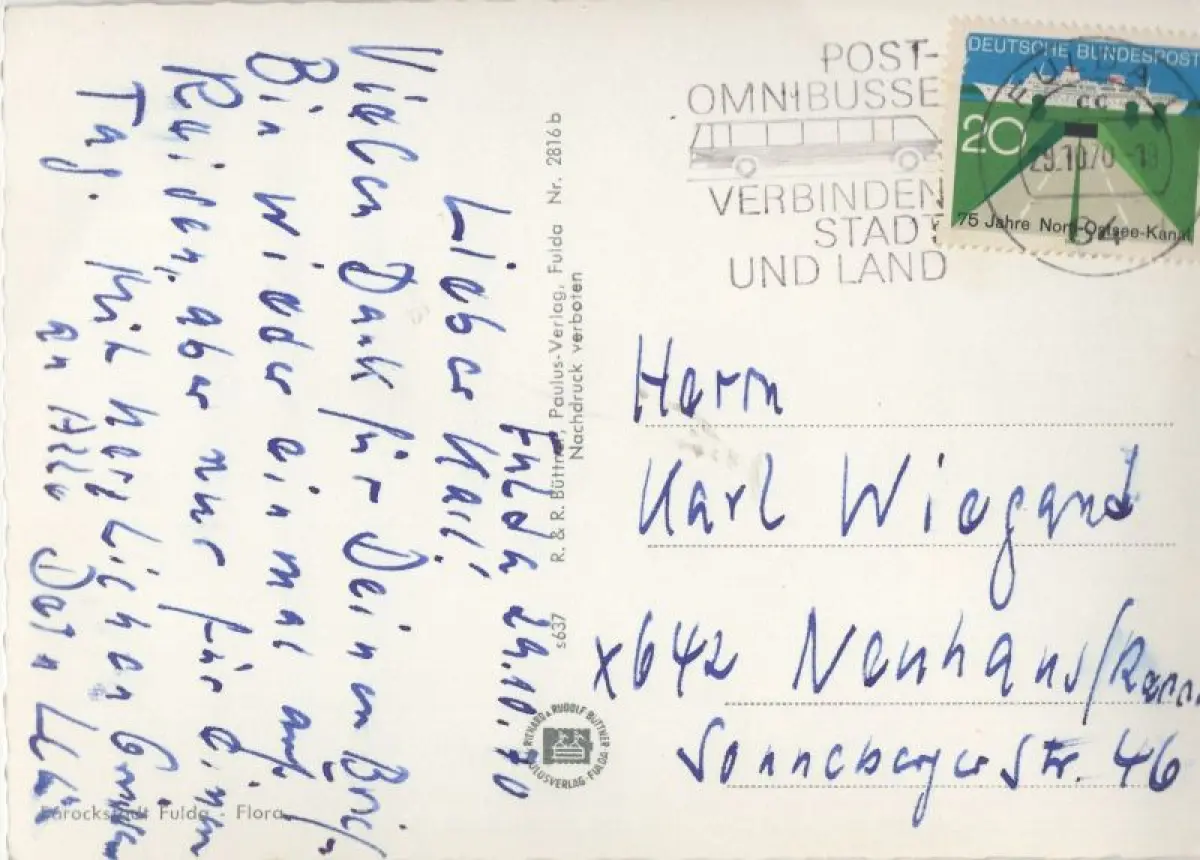 Fulda 29.10.70
Lieber Karl,
Vielen Dank für Deinen Brief.
Bin wieder einmal auf
Reisen, aber nur für einen
Tag. Mit herzlichen Grüßen
an Alle Dein
Barockstadt Fulda - Flora
R. & R. Büttner, Paulus-Verlag, Fulda Nr. 2816b
Nachdruck verboten
s637
RICHARD & RUDOLF BÜTTNER
PAULUSVERLAG · FULDA
POST-
OMNIBUSSE
VERBINDEN
STADT
UND LAND
DEUTSCHE BUNDESPOST
20
75 Jahre Nord-Ostsee-Kanal
FULDA
cc
29.10.70-18
Herrn
Karl Wiegand
x642 Neuhaus/Renn
Sonneberger Str. 46